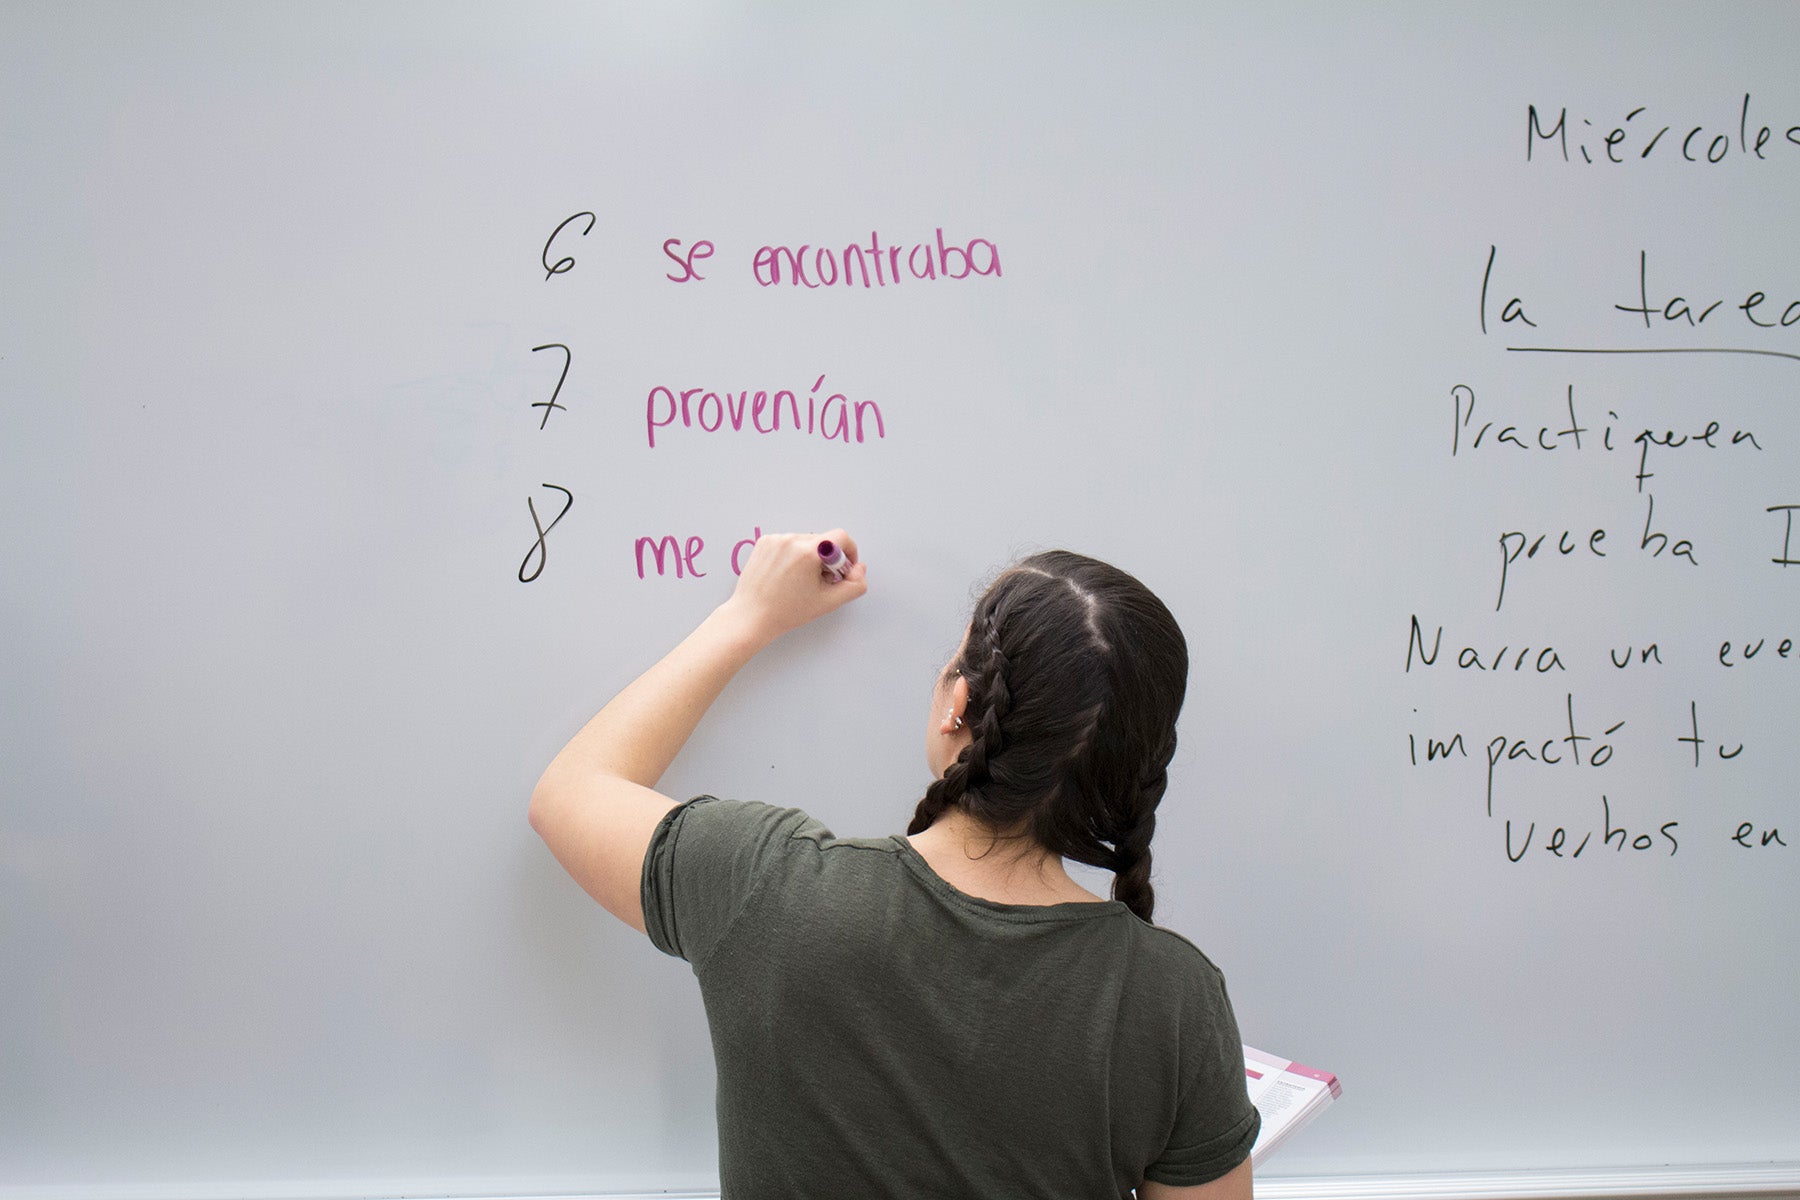 6 se encontraba
7 provenían
8 me
Miércoles
la tarea
Practiquen
prueba I
Narra un
impactó tu
verbos en